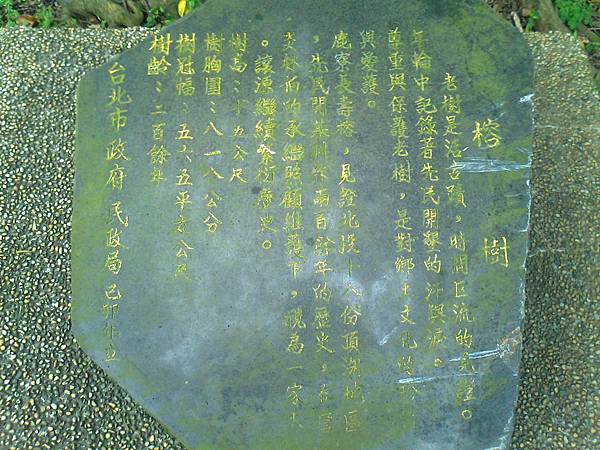 榕樹
老樹是活古蹟，時間巨流的見證。
年輪中記錄著先民開墾的汗與淚。
尊重與保護老樹，是對鄉土文化的
與愛護。
鹿寮長壽榕，見證北投十八份頂湖地區
，先民開墾利用兩百餘年的歷史，在曹
炎林伯的承繼照顧維護下，視為一家人
。讓源繼續繁衍歷史。
樹高：十九公尺
樹胸圍：八一八公分
樹冠幅：五六五平方公尺
樹齡：二百餘年
台北市政府民政局 己卯年立